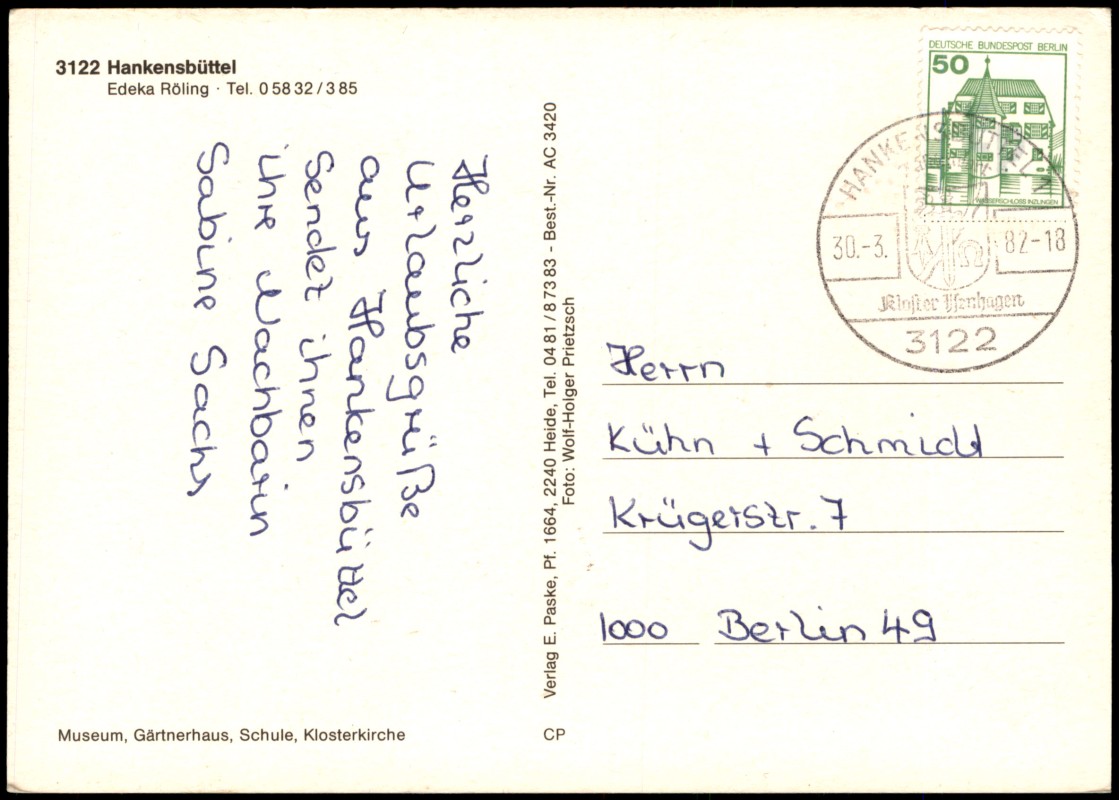 3122 Hankensbüttel
Edeka Röling · Tel. 0 58 32 / 3 85
Herzliche
Urlaubsgrüße
aus Hankensbüttel
sendet ihnen
ihre Nachbarin
Sabine Sachs
Museum, Gärtnerhaus, Schule, Klosterkirche
Verlag E. Paske, Pf. 1664, 2240 Heide, Tel. 04 81 / 8 73 83 - Best.-Nr. AC 3420
Foto: Wolf-Holger Prietzsch
CP
DEUTSCHE BUNDESPOST BERLIN
50
WASSERSCHLOSS INZLINGEN
30.-3. 82-18
Kloster Isenhagen
3122
Herrn
Kühn + Schmidt
Krügerstr. 7
1000 Berlin 49